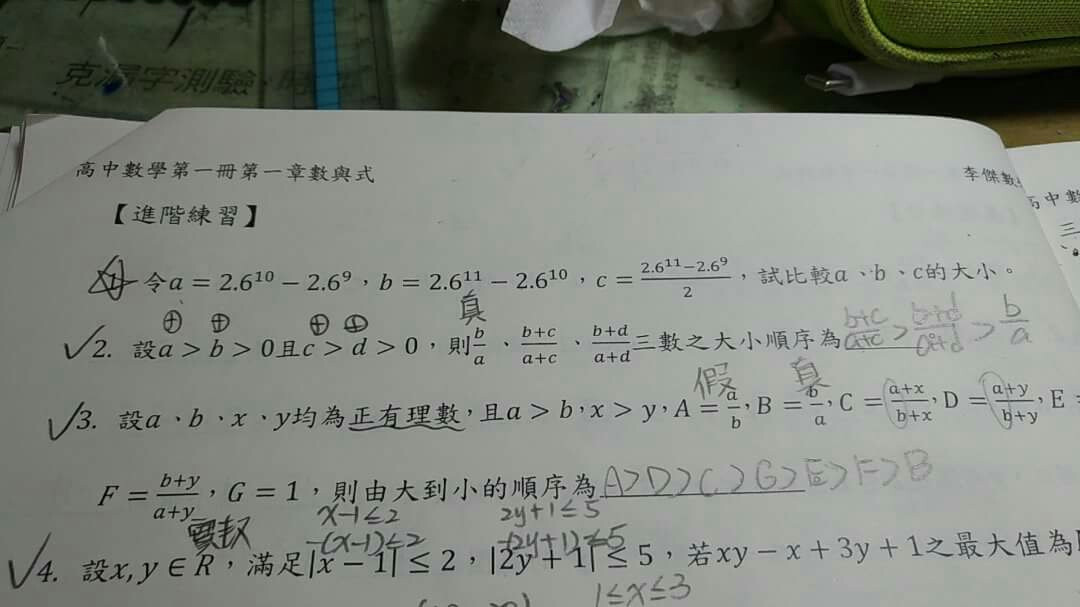 克漏字測驗
高中數學第一冊第一章數與式
李傑數
高中數
三
【進階練習】
1. 令a = 2.6¹⁰ − 2.6⁹，b = 2.6¹¹ − 2.6¹⁰，c = (2.6¹¹−2.6⁹)/2，試比較a、b、c的大小。
⊕ ⊕ ⊕ ⊕ 真
✓2. 設a > b > 0且c > d > 0，則b/a、(b+c)/(a+c)、(b+d)/(a+d)三數之大小順序為 (b+c)/(a+c) > (b+d)/(a+d) > b/a
假 真
✓3. 設a、b、x、y均為正有理數，且a > b，x > y，A = a/b，B = b/a，C = (a+x)/(b+x)，D = (a+y)/(b+y)，E =
F = (b+y)/(a+y)，G = 1，則由大到小的順序為 A>D>C>G>E>F>B
實數 x-1≤2 2y+1≤5
-(x-1)≤2 -(2y+1)≤5
✓4. 設x, y ∈ R，滿足|x − 1| ≤ 2，|2y + 1| ≤ 5，若xy − x + 3y + 1之最大值為
1≤x≤3